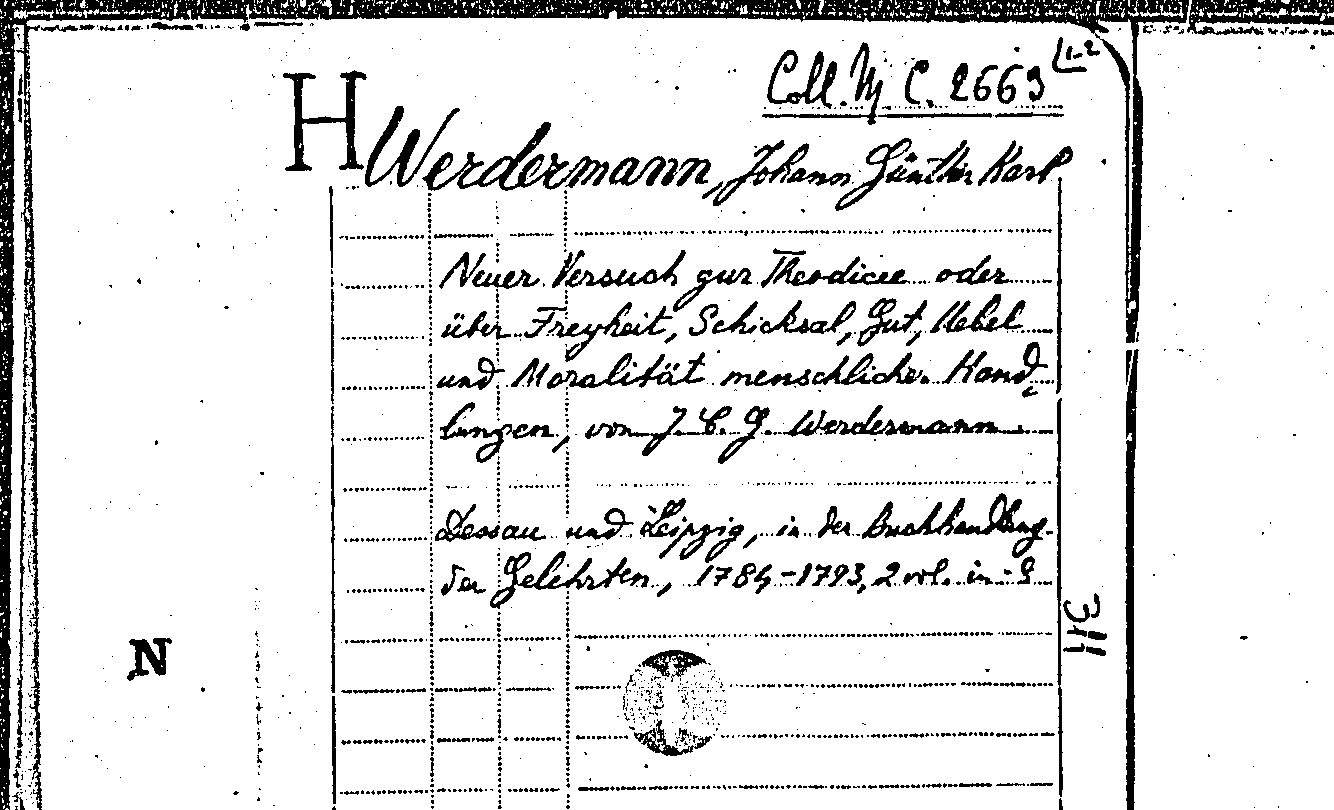 Coll. M C. 2663 1-2
H
Werdermann, Johann Günther Karl
Neuer Versuch zur Theodicee oder
über Freyheit, Schicksal, Gut, Uebel
und Moralität menschlicher Hand
lungen, von J. C. G. Werdermann.
Dessau und Leipzig, in der Buchhandlung
der Gelehrten, 1784-1793, 2 vol. in-8
N